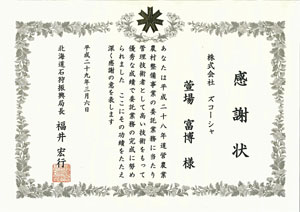 感謝状
株式会社 ズコーシャ
萱場 富博 様
あなたは平成二十八年道営農業
農村整備事業の委託業務に当たり
管理技術者として高い技術をもって
優秀な成績で委託業務の完成に努め
られました ここにその功績をたたえ
深く感謝の意を表します
平成二十九年三月六日
北海道石狩振興局長 福井 宏行